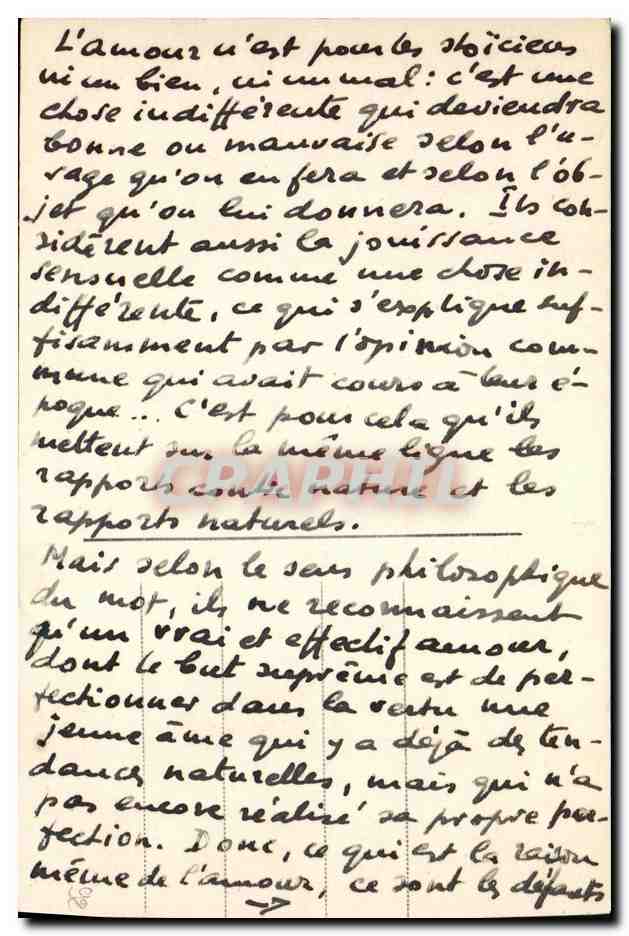 L'amour n'est pour les stoïciens
ni un bien, ni un mal : c'est une
chose indifférente qui deviendra
bonne ou mauvaise selon l'u-
sage qu'on en fera et selon l'ob-
jet qu'on lui donnera. Ils con-
sidèrent aussi la jouissance
sensuelle comme une chose in-
différente, ce qui s'explique suf-
fisamment par l'opinion com-
mune qui avait cours à leur é-
poque... C'est pour cela qu'ils
mettent sur la même ligne les
rapports contre nature et les
CPAPHIL
rapports naturels.
Mais selon le sens philosophique
du mot, ils ne reconnaissent
qu'un vrai et effectif amour,
dont le but suprême est de per-
fectionner dans la vertu une
jeune âme qui y a déjà des ten-
dances naturelles, mais qui n'a
pas encore réalisé sa propre per-
fection. Donc, ce qui est la raison
même de l'amour, ce sont les défauts
→